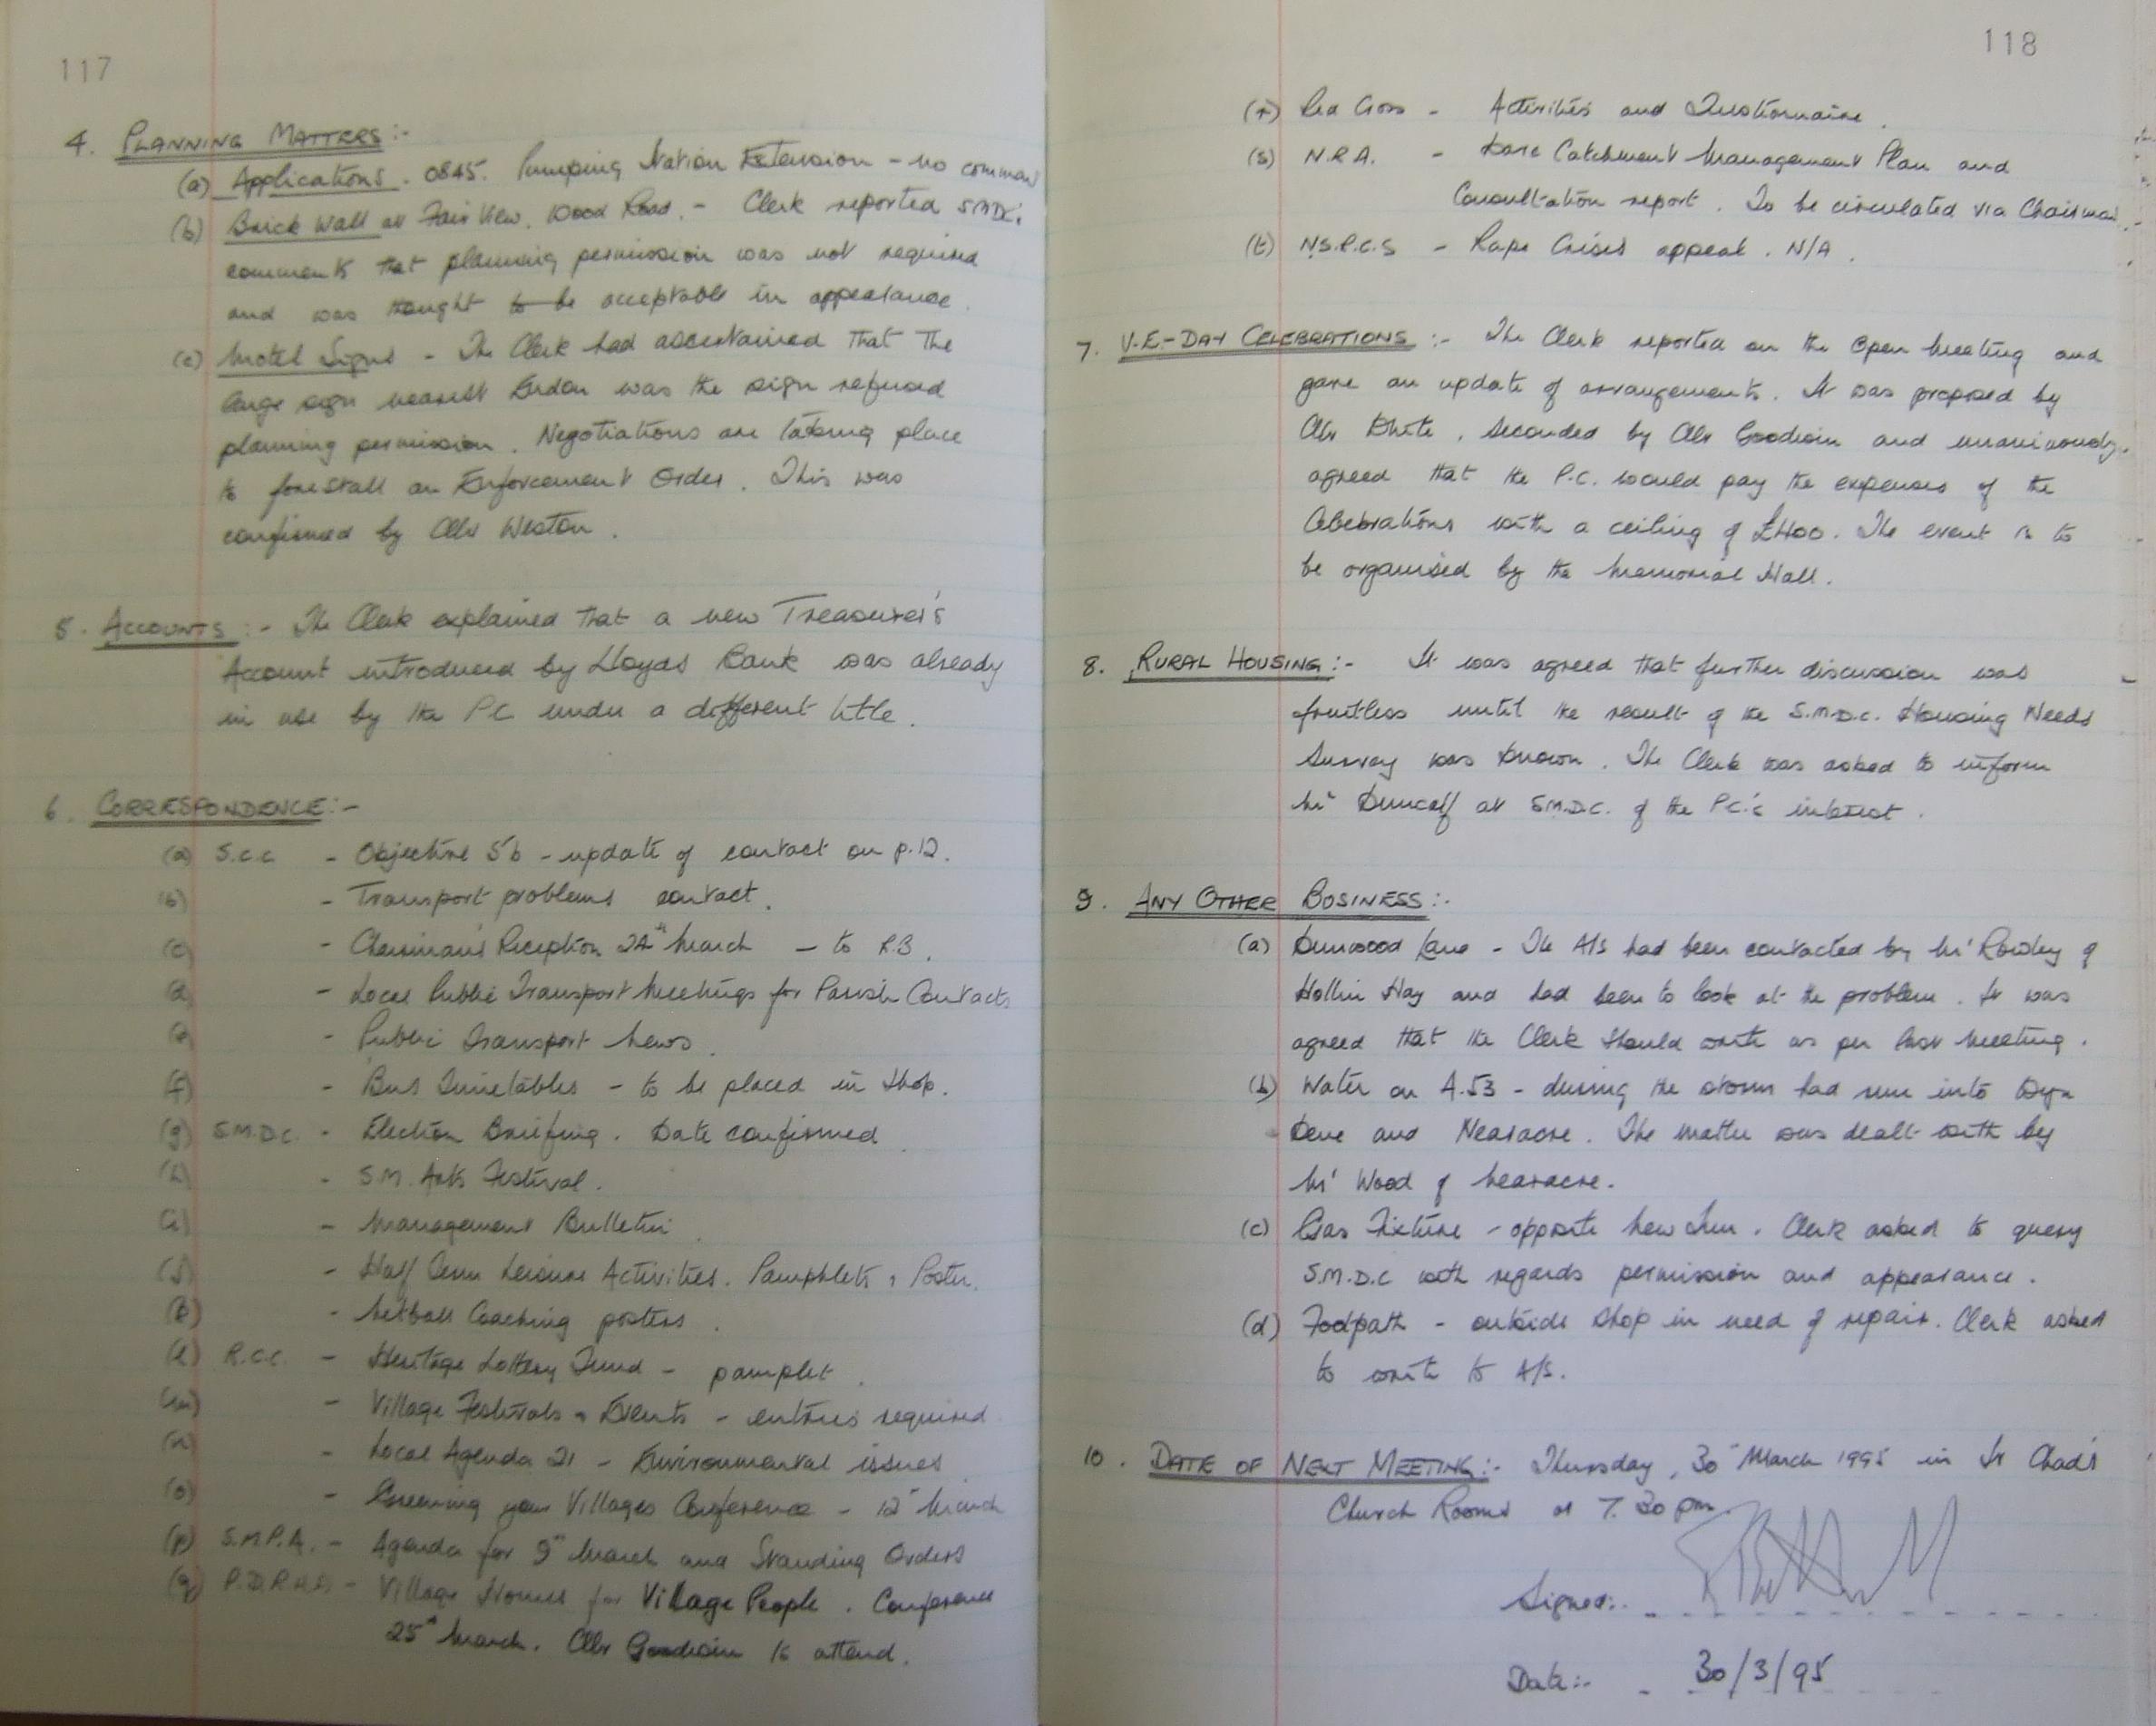 117
4. PLANNING MATTERS:-
(a) Applications. 0845. Pumping Station Extension - no comment
(b) Brick Wall at Fair View, Wood Road. - Clerk reported S.M.D.C.'s
comments that planning permission was not required
and was thought to be acceptable in appearance.
(c) Motel Signs - The Clerk had ascertained that the
large sign nearest Endon was the sign refused
planning permission. Negotiations are taking place
to forestall an Enforcement Order. This was
confirmed by Cllr Weston.
5. ACCOUNTS:- The Clerk explained that a new Treasurer's
Account introduced by Lloyds Bank was already
in use by the P.C under a different title.
6. CORRESPONDENCE:-
(a) S.C.C - Objective 5b - update of contact on p.12.
(b) - Transport problems contact.
(c) - Chairman's Reception 24th March - to R.B.
(d) - Local Public Transport Meetings for Parish Contacts
(e) - Public Transport News.
(f) - Bus Timetables - to be placed in Shop.
(g) S.M.D.C. - Election Briefing. Date confirmed.
(h) - S.M. Arts Festival.
(i) - Management Bulletin.
(j) - Half Term Leisure Activities. Pamphlets + Poster.
(k) - Netball Coaching posters.
(l) R.C.C. - Heritage Lottery Fund - pamplet.
(m) - Village Festivals + Events - entries required.
(n) - Local Agenda 21 - Environmental issues.
(o) - Greening your Villages Conference - 12th March
(p) S.M.P.A. - Agenda for 9th March and Standing Orders
(q) - Village Homes for Village People. Conference
25th March. Cllr Goodwin to attend.
118
(r) Red Cross - Activities and Questionnaire.
(s) N.R.A. - Dove Catchment Management Plan and
Consultation report. To be circulated via Chairman.
(t) N.S.P.C.S - Rape Crisis appeal. N/A.
7. V.E.-DAY CELEBRATIONS:- The Clerk reported on the Open Meeting and
gave an update of arrangements. It was proposed by
Cllr White, seconded by Cllr Goodwin and unanimously
agreed that the P.C. would pay the expenses of the
Celebrations with a ceiling of £400. The event is to
be organised by the Memorial Hall.
8. RURAL HOUSING:- It was agreed that further discussion was
fruitless until the result of the S.M.D.C. Housing Needs
Survey was known. The Clerk was asked to inform
Mr Duncalf at S.M.D.C. of the P.C.'s interest.
9. ANY OTHER BUSINESS:-
(a) Dunwood Lane - The A/S had been contacted by Mr Rowley of
Hollin Hay and had been to look at the problem. It was
agreed that the Clerk should write as per last Meeting.
(b) Water on A.53 - during the storm had run into
Dene and Nearacre. The matter was dealt with by
Mr Wood of Nearacre.
(c) Gas Fixture - opposite New Inn. Clerk asked to query
S.M.D.C with regards permission and appearance.
(d) Footpath - outside Shop in need of repair. Clerk asked
to write to A/S.
10. DATE OF NEXT MEETING:- Thursday, 30th March 1995 in St Chad's
Church Rooms at 7.30 pm.
Signed:-
Date:- 30/3/95